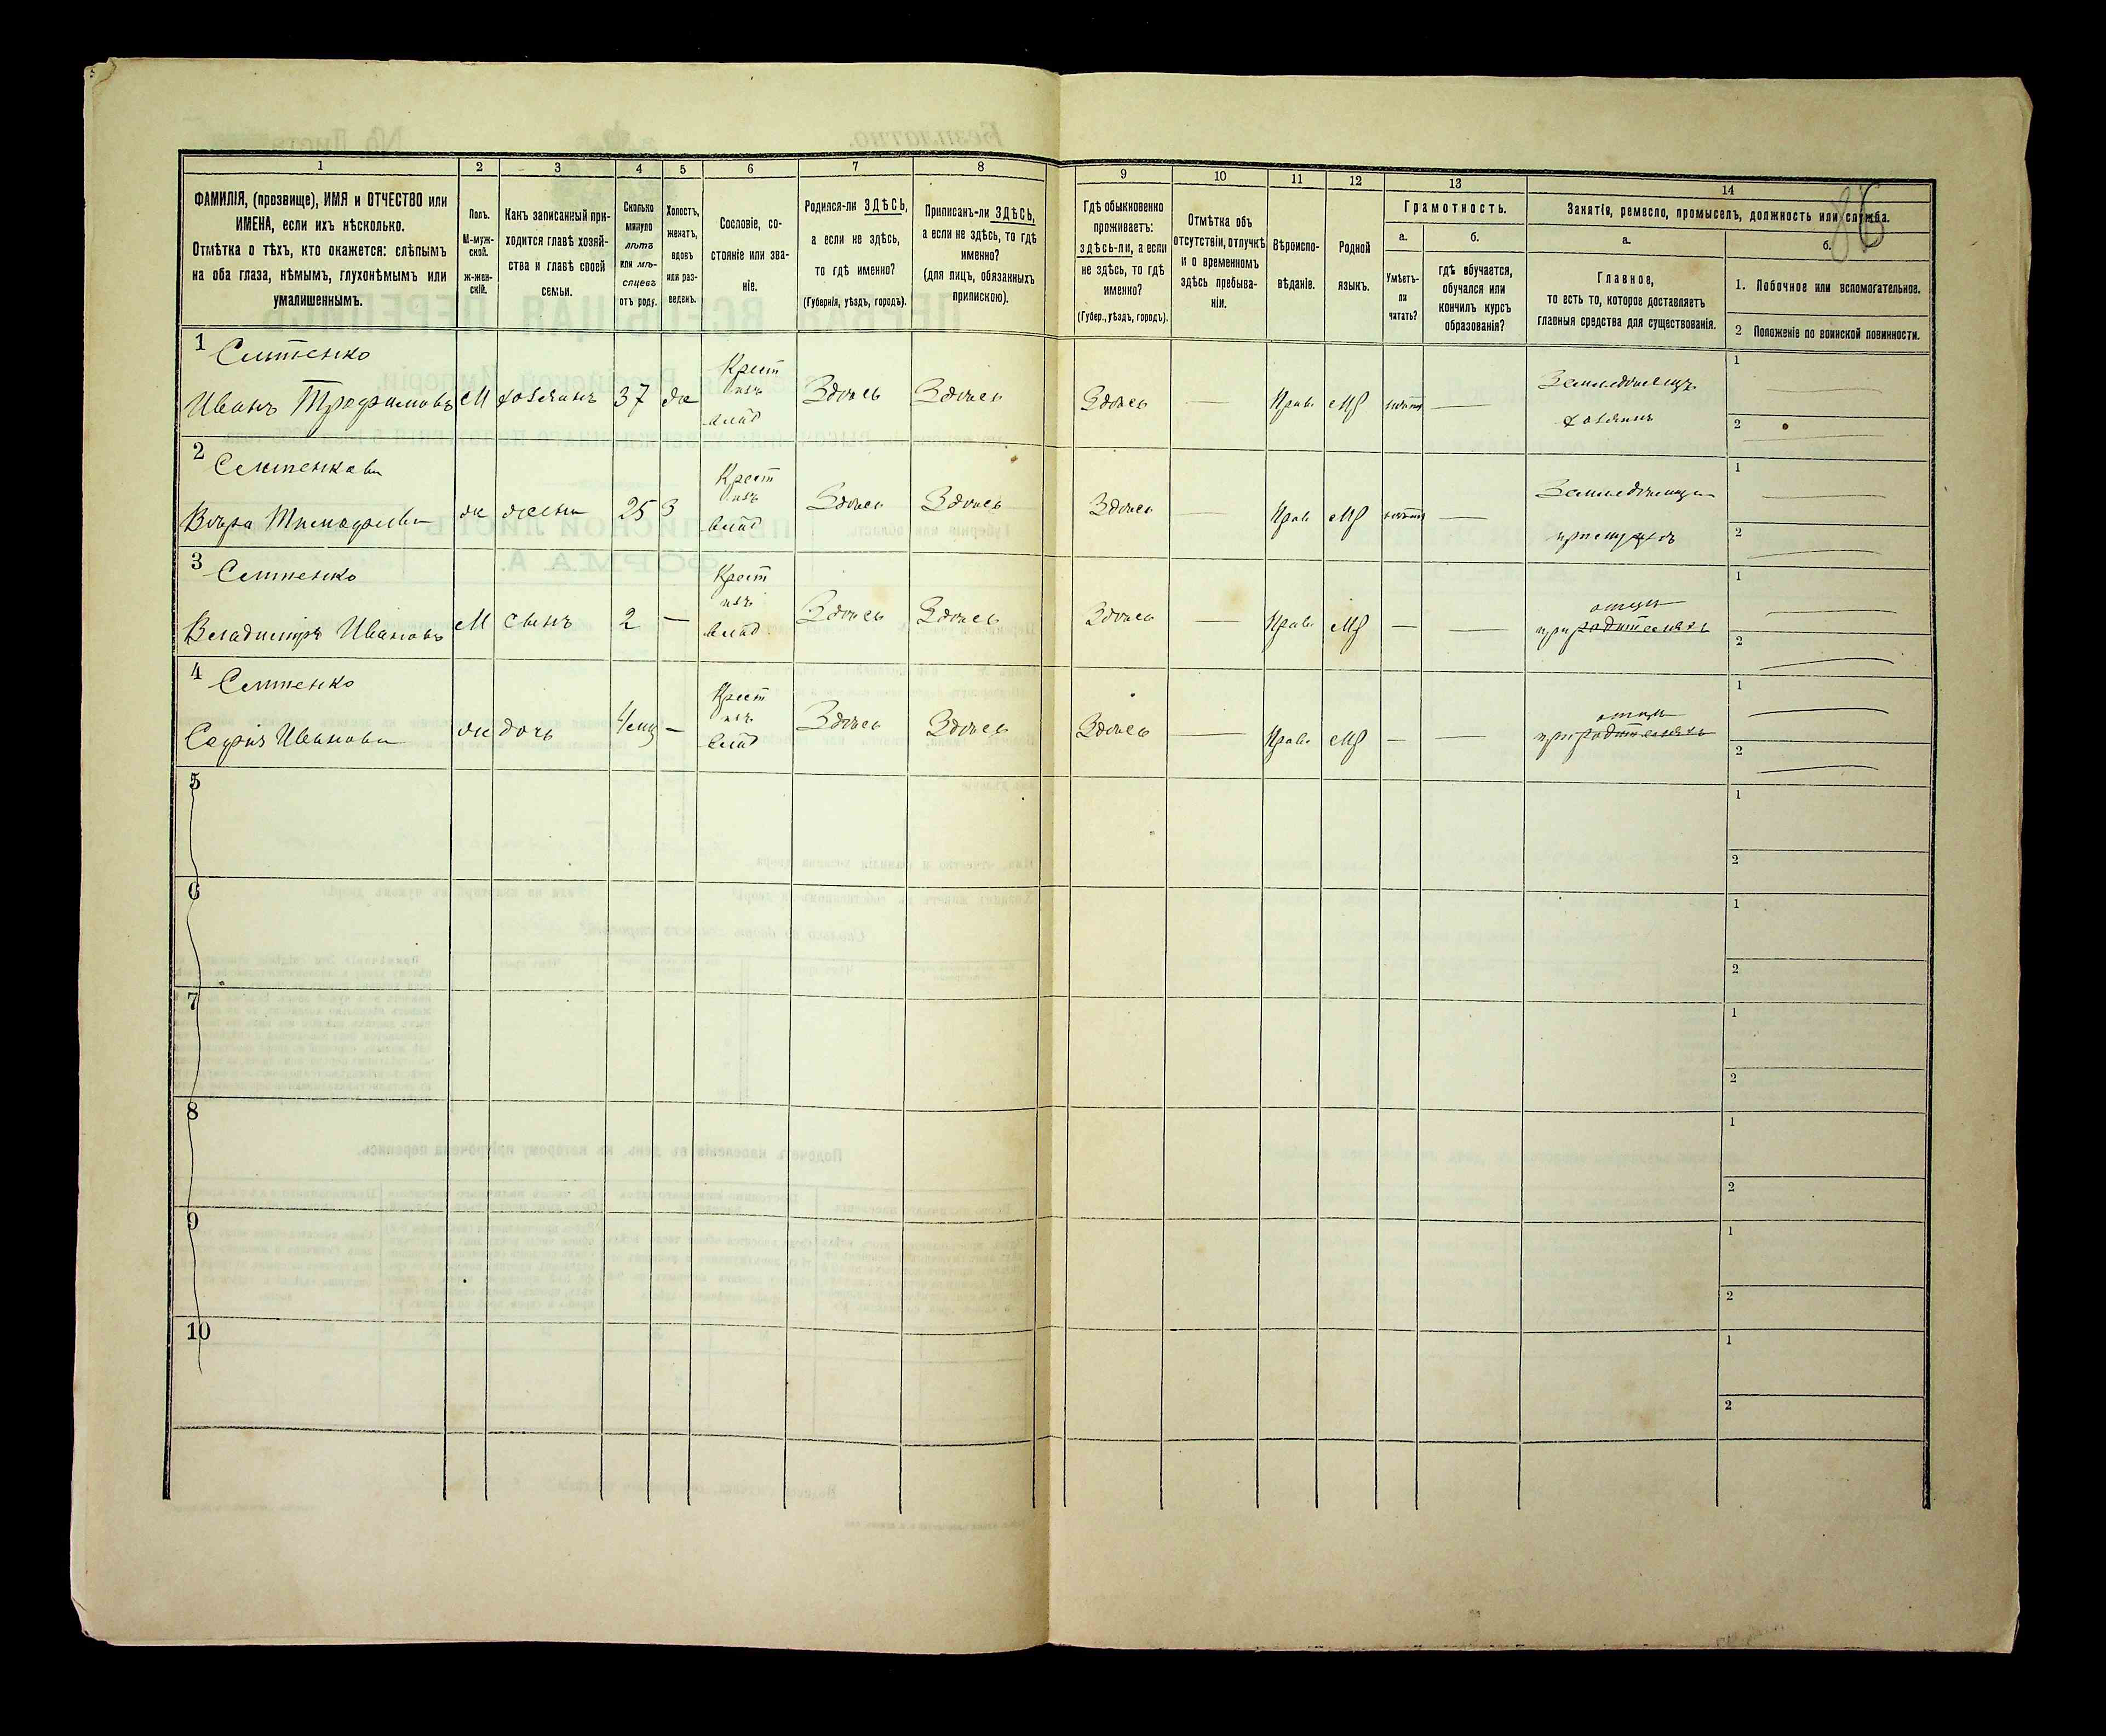 86
1 2 3 4 5 6 7 8 9 10 11 12 13 14
ФАМИЛІЯ, (прозвище), ИМЯ и ОТЧЕСТВО или
ИМЕНА, если ихъ нѣсколько.
Отмѣтка о тѣхъ, кто окажется: слѣпымъ
на оба глаза, нѣмымъ, глухонѣмымъ или
умалишеннымъ.
Полъ.
М-муж-
ской.
ж-жен-
скій.
Какъ записанный при-
ходится главѣ хозяй-
ства и главѣ своей
семьи.
Сколько
минуло
лѣтъ
или мѣ-
сяцевъ
отъ роду.
Холостъ,
женатъ,
вдовъ
или раз-
веденъ.
Сословіе, со-
стояніе или зва-
ніе.
Родился-ли ЗДѢСЬ,
а если не здѣсь,
то гдѣ именно?
(Губернія, уѣздъ, городъ).
Приписанъ-ли ЗДѢСЬ,
а если не здѣсь, то гдѣ
именно?
(для лицъ, обязанныхъ
припискою).
Гдѣ обыкновенно
проживаетъ:
здѣсь-ли, а если
не здѣсь, то гдѣ
именно?
(Губер., уѣздъ, городъ).
Отмѣтка объ
отсутствіи, отлучкѣ
и о временномъ
здѣсь пребыва-
ніи.
Вѣроиспо-
вѣданіе.
Родной
языкъ.
Грамотность.
а.
Умѣетъ-
ли
читать?
б.
гдѣ обучается,
обучался или
кончилъ курсъ
образованія?
Занятіе, ремесло, промыселъ, должность или служба.
а.
Главное,
то есть то, которое доставляетъ
главныя средства для существованія.
б.
1. Побочное или вспомогательное.
2 Положеніе по воинской повинности.
1
Иванъ Трофимовъ М хозяинъ 37 ж Крест изъ влад Здѣсь Здѣсь Здѣсь — Прав. Мр нѣтъ — Земледѣлецъ хозяинъ
1 —
2 —
2
Вѣра Тимофѣева ж жена 25 З Крест изъ влад Здѣсь Здѣсь Здѣсь — Прав. Мр нѣтъ — Земледѣлица при мужѣ
1 —
2 —
3
Владимиръ Ивановъ М сынъ 2 — Крест изъ влад Здѣсь Здѣсь Здѣсь — Прав. Мр — — при отцѣ родителяхъ
1 —
2 —
4
Софія Иванова ж дочь — Крест изъ влад Здѣсь Здѣсь Здѣсь — Прав. Мр — — при отцѣ родителяхъ
1 —
2 —
5
1
2
6
1
2
7
1
2
8
1
2
9
1
2
10
1
2